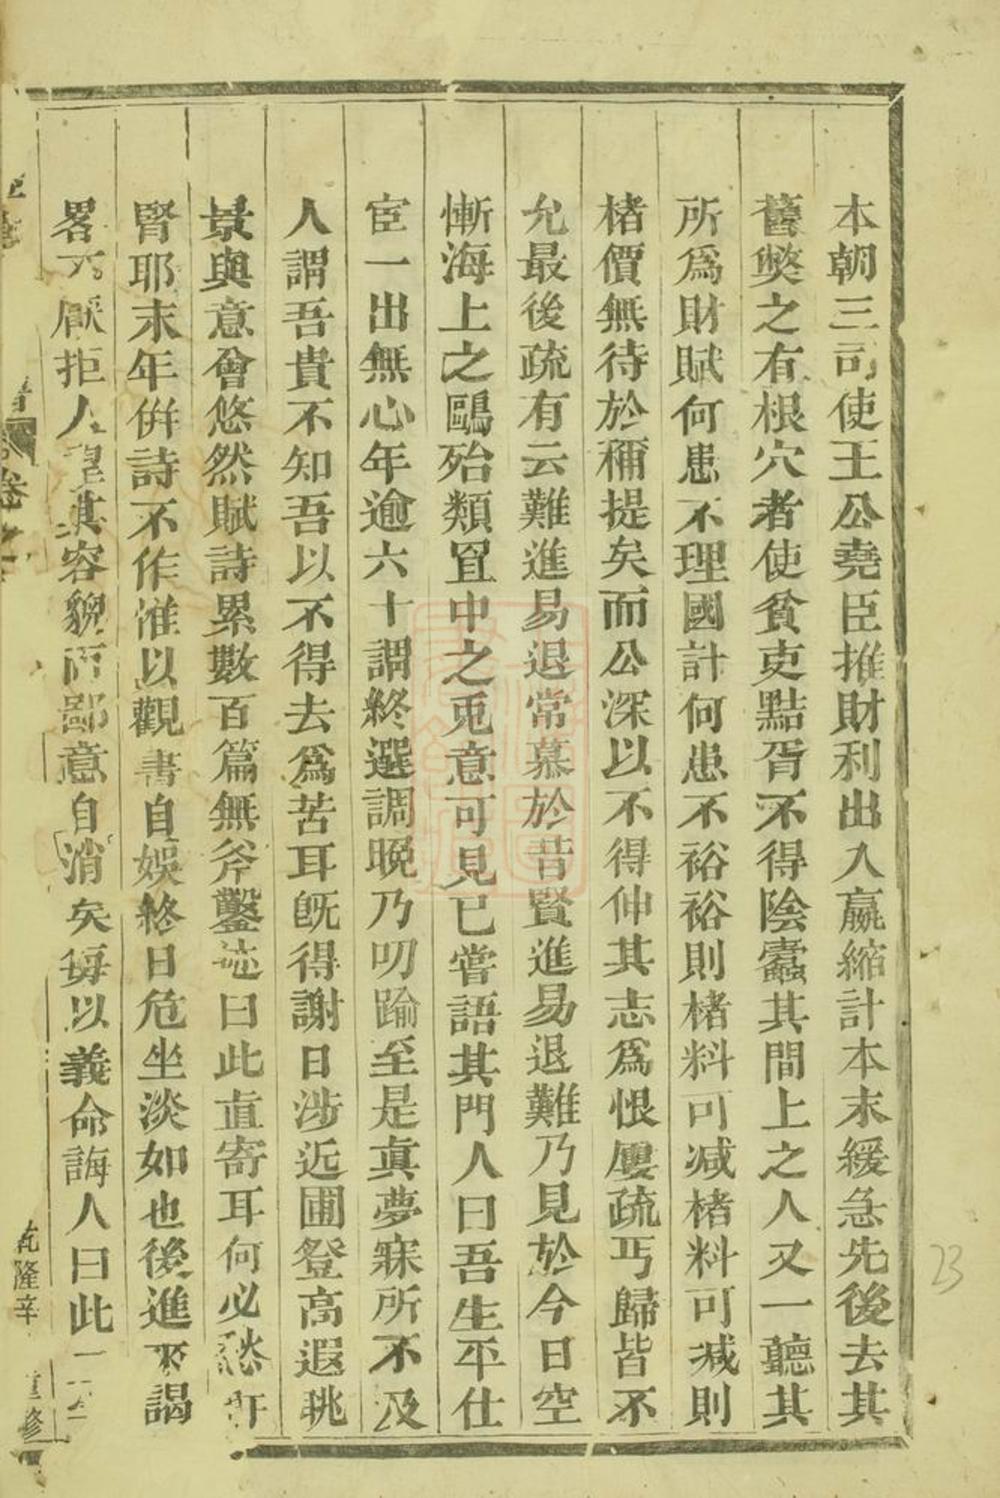 本朝三司使王公堯臣推財利出入嬴縮計本末緩急先後去其
舊獘之有根穴者使貧吏點胥不得陰蠹其間上之人又一聽其
所爲財賦何患不理國計何患不裕裕則楮料可减楮料可减則
楮價無待於稱提矣而公深以不得伸其志爲恨屢疏丐歸皆不
允最後疏有云難進易退常慕於昔賢進易退難乃見於今日空
慚海上之鷗殆類罝中之兎意可見已嘗語其門人曰吾生平仕
宦一出無心年逾六十謂終選調晚乃叨踰至是眞夢寐所不及
人謂吾貴不知吾以不得去爲苦耳旣得謝日涉近圃登高遐眺
景與意會悠然賦詩累數百篇無斧鑿迹曰此直寄耳何必愁肝
腎耶末年併詩不作惟以觀書自娛終日危坐淡如也後進來謁
畧不厭拒人望其容貌而鄙意自消矣每以義命誨人曰此二
卷之
乾隆辛
重修
23